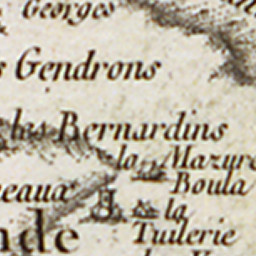 Georges
Gendrons
les Bernardins
la Mazure
Boula
la
Tuilerie